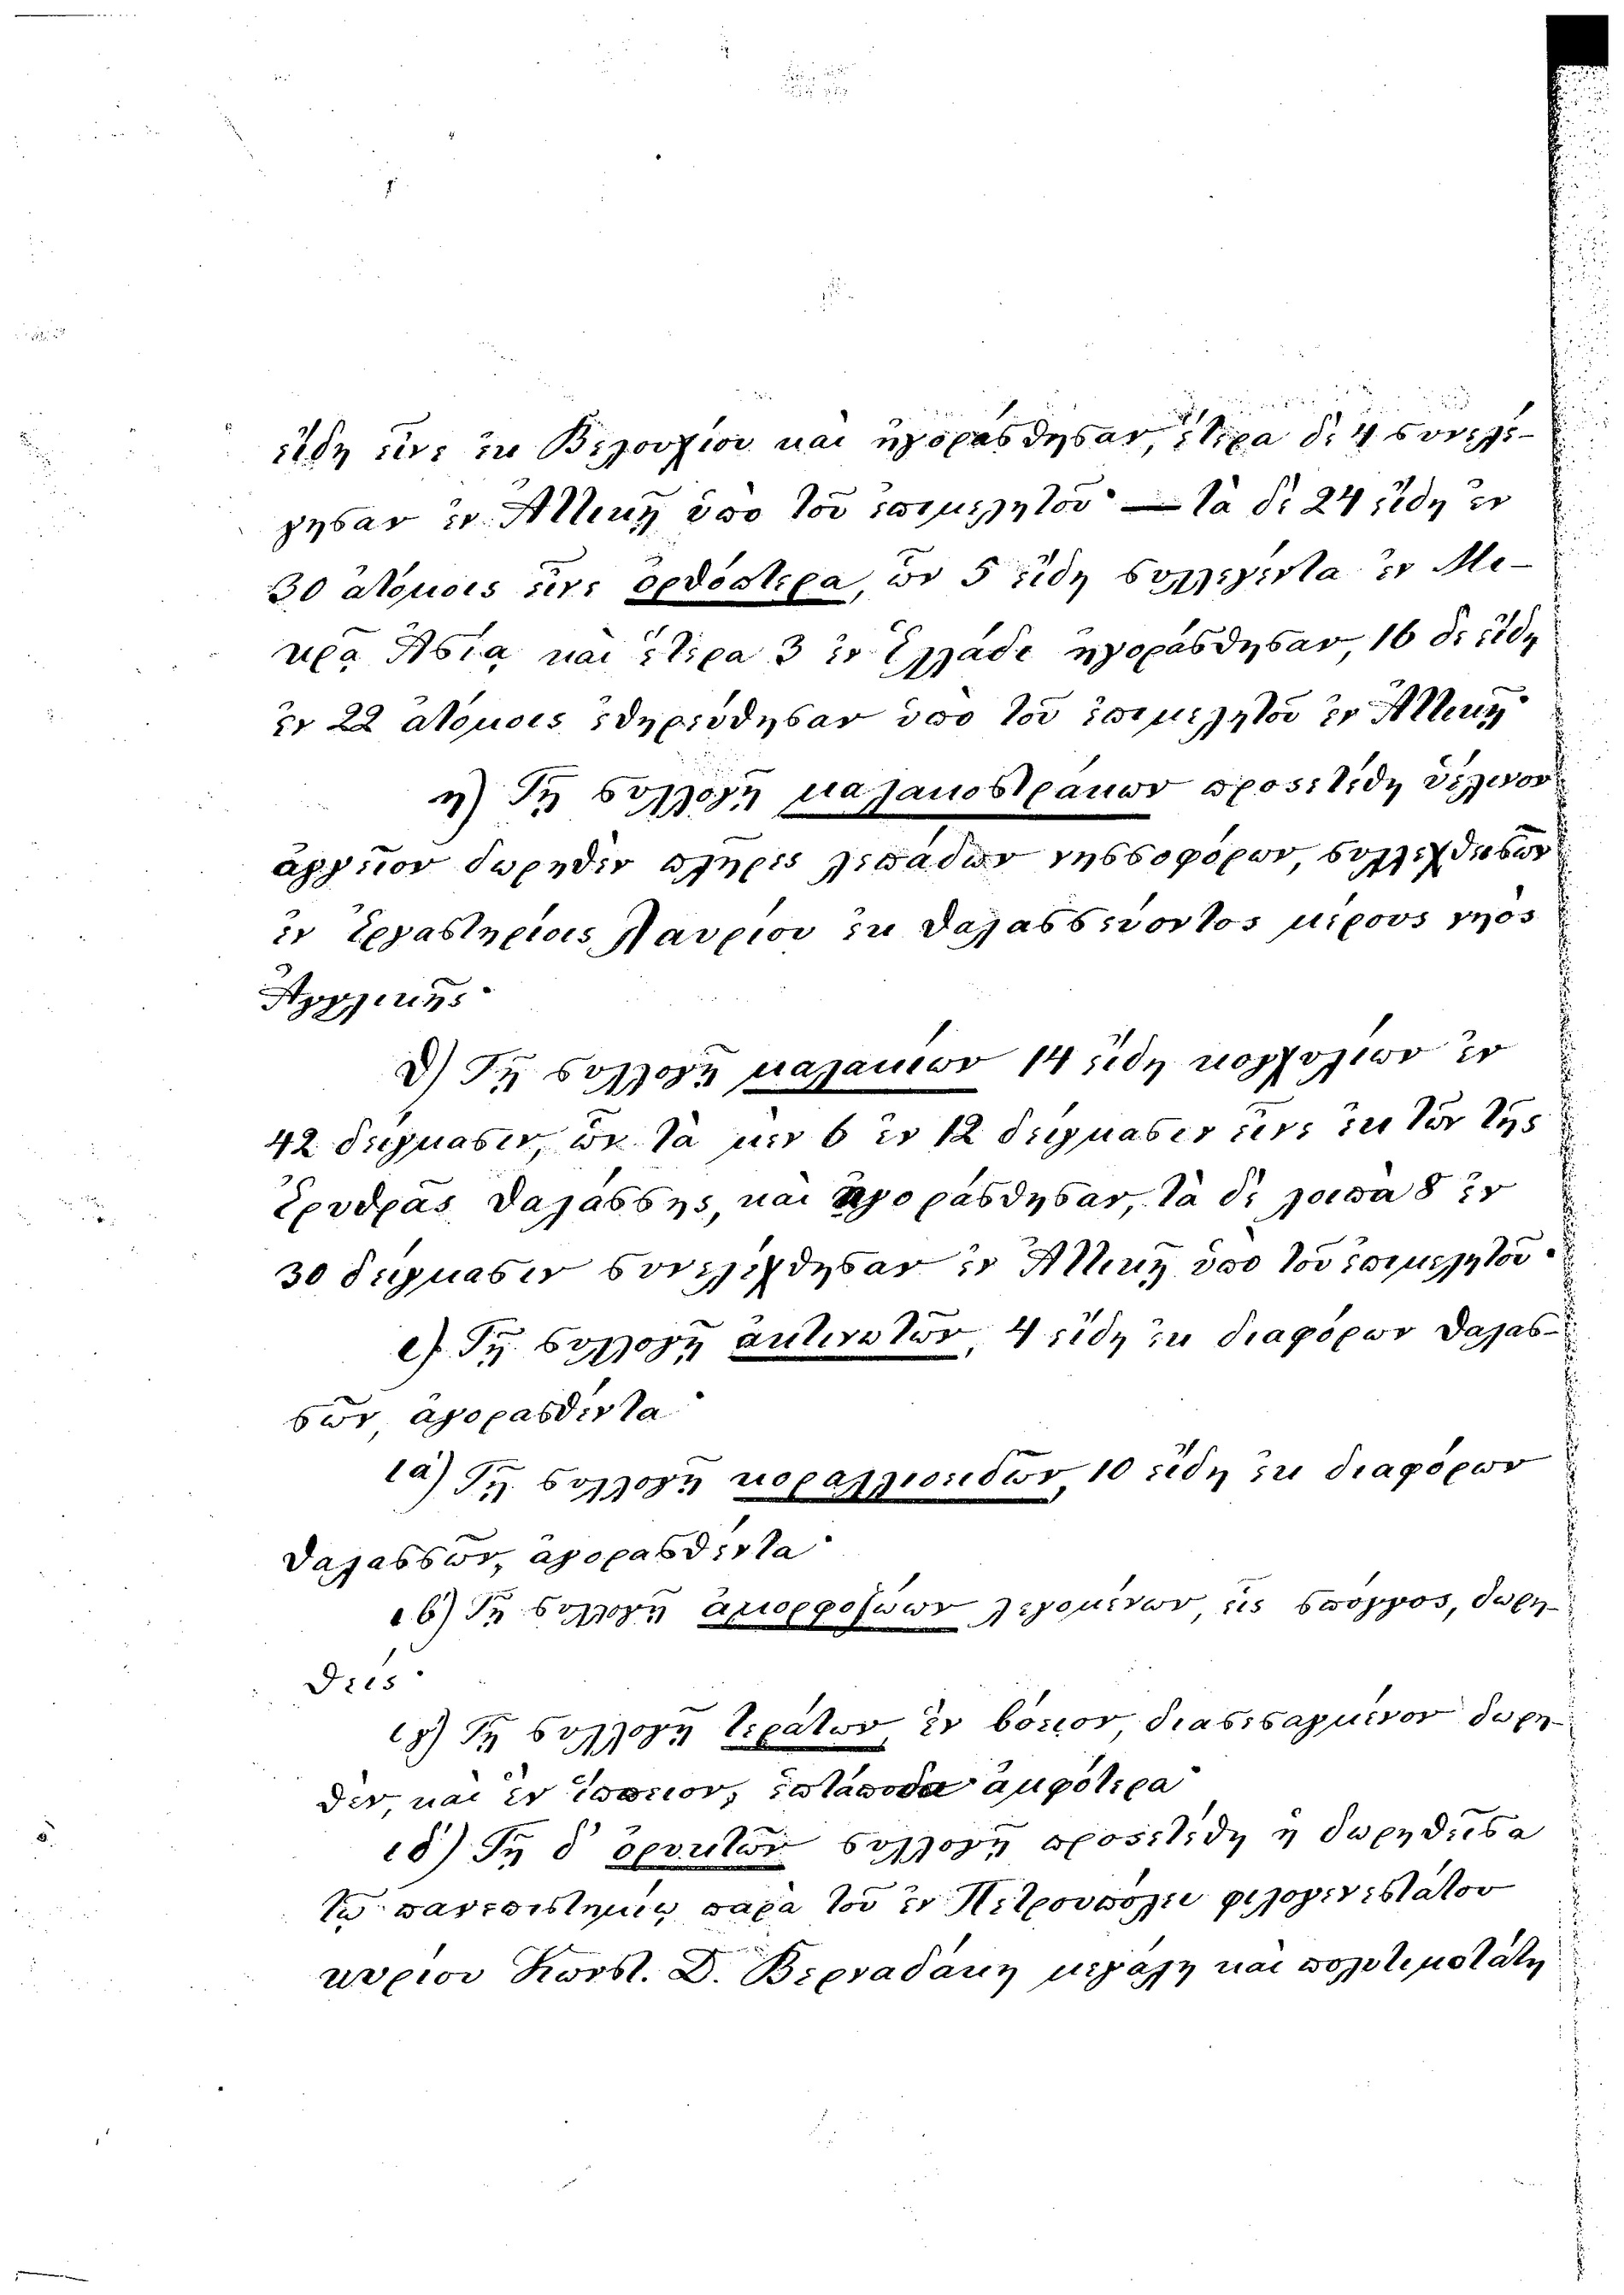 εἴδη εἰνε ἐκ Βελουχίου καὶ ἠγοράσθησαν, ἕτερα δὲ 4 συνελέ-
γησαν ἐν Ἀττικῇ ὑπὸ τοῦ ἐπιμελητοῦ· — τὰ δὲ 24 εἴδη ἐν
30 ἀτόμοις εἰνε ὀρθόπτερα, ὧν 5 εἴδη συλλεγέντα ἐν Μι-
κρᾷ Ἀσίᾳ καὶ ἕτερα 3 ἐν Ἑλλάδι ἠγοράσθησαν, 16 δὲ εἴδη
ἐν 22 ἀτόμοις ἐθηρεύθησαν ὑπὸ τοῦ ἐπιμελητοῦ ἐν Ἀττικῇ·
η) Τῇ συλλογῇ μαλακοστράκων προσετέθη δείγμα
ἀρτίως δωρηθὲν πλήρες λεπάδων νησσοφόρων, συλλεχθεισῶν
ἐν Ἐργαστηρίοις Λαυρίου ἐκ θαλασσεύοντος μέρους νηὸς
Ἀγγλικῆς·
θ) Τῇ συλλογῇ μαλακίων 14 εἴδη κογχυλίων ἐν
42 δείγμασιν, ὧν τὰ μὲν 6 ἐν 12 δείγμασιν εἰνε ἐκ τῶν τῆς
Ἐρυθρᾶς θαλάσσης, καὶ ἠγοράσθησαν, τὰ δὲ λοιπὰ 8 ἐν
30 δείγμασιν συνελέχθησαν ἐν Ἀττικῇ ὑπὸ τοῦ ἐπιμελητοῦ·
ι) Τῇ συλλογῇ ἀκτινωτῶν, 4 εἴδη ἐκ διαφόρων θαλασ-
σῶν ἀγορασθέντα·
ια) Τῇ συλλογῇ κοραλλιοειδῶν, 10 εἴδη ἐκ διαφόρων
θαλασσῶν, ἀγορασθέντα·
ιβ) Τῇ συλλογῇ ἀμορφοζώων λεγομένων, εἷς σπόγγος, δωρη-
θείς·
ιγ) Τῇ συλλογῇ τεράτων, ἓν βόειον, διασεσαγμένον δωρη-
θέν, καὶ ἓν ἵππειον, ἑπτάποδα ἀμφότερα·
ιδ) Τῇ δ' ὀρυκτῶν συλλογῇ προσετέθη ἡ δωρηθεῖσα
τῷ πανεπιστημίῳ παρὰ τοῦ ἐν Πετρουπόλει φιλογενεστάτου
κυρίου Κωνστ. Θ. Βερναδάκη μεγάλη καὶ πολυτιμοτάτη